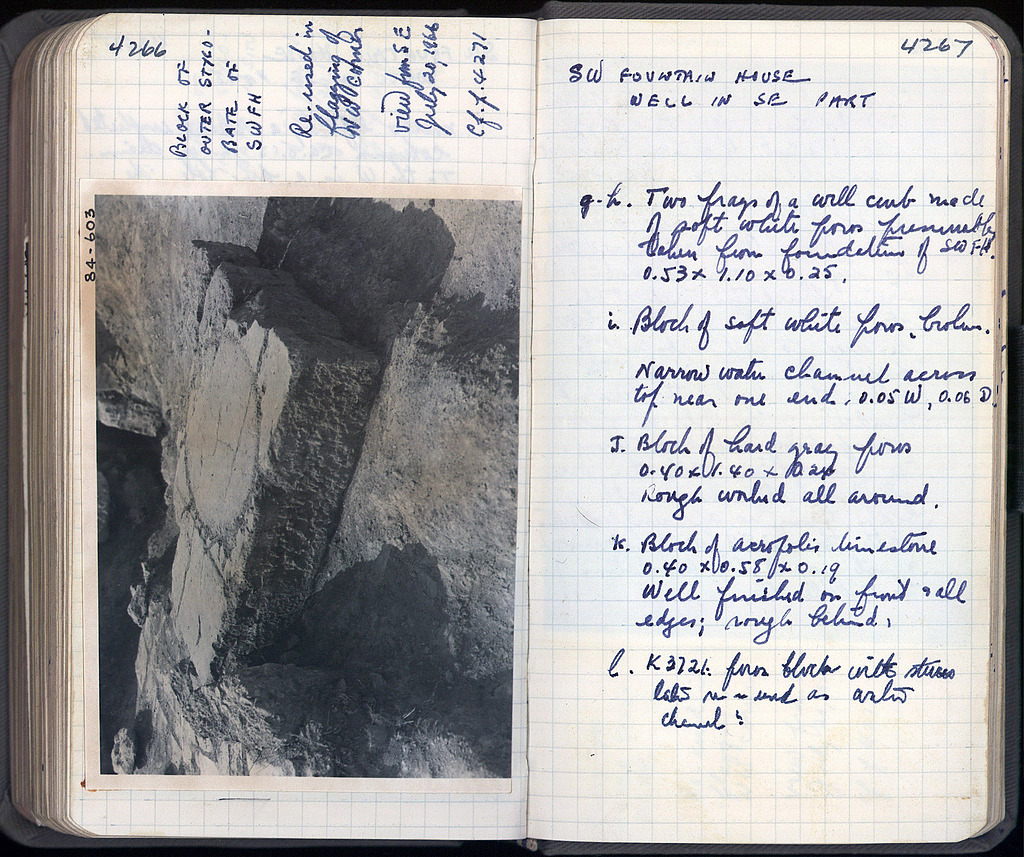 4266
BLOCK OF
OUTER STYLO-
BATE OF
SWFH
Re-used in
flagging of
NW corner
view from SE
July 20, 1966
Cf. p. 4271
84-603
4267
SW FOUNTAIN HOUSE
WELL IN SE PART
g-h. Two frags of a well curb made
of soft white poros presumably
taken from foundations of SWFH.
0.53 x 1.10 x 0.25.
i. Block of soft white poros, broken.
Narrow water channel across
top near one end. 0.05 W, 0.06 D.
J. Block of hard gray poros
0.40 x 1.40 x 0.24
Rough worked all around.
K. Block of acropolis limestone
0.40 x 0.58 x 0.19
Well finished on front & all
edges; rough behind.
l. K 3721. poros block with
later as water
channel?